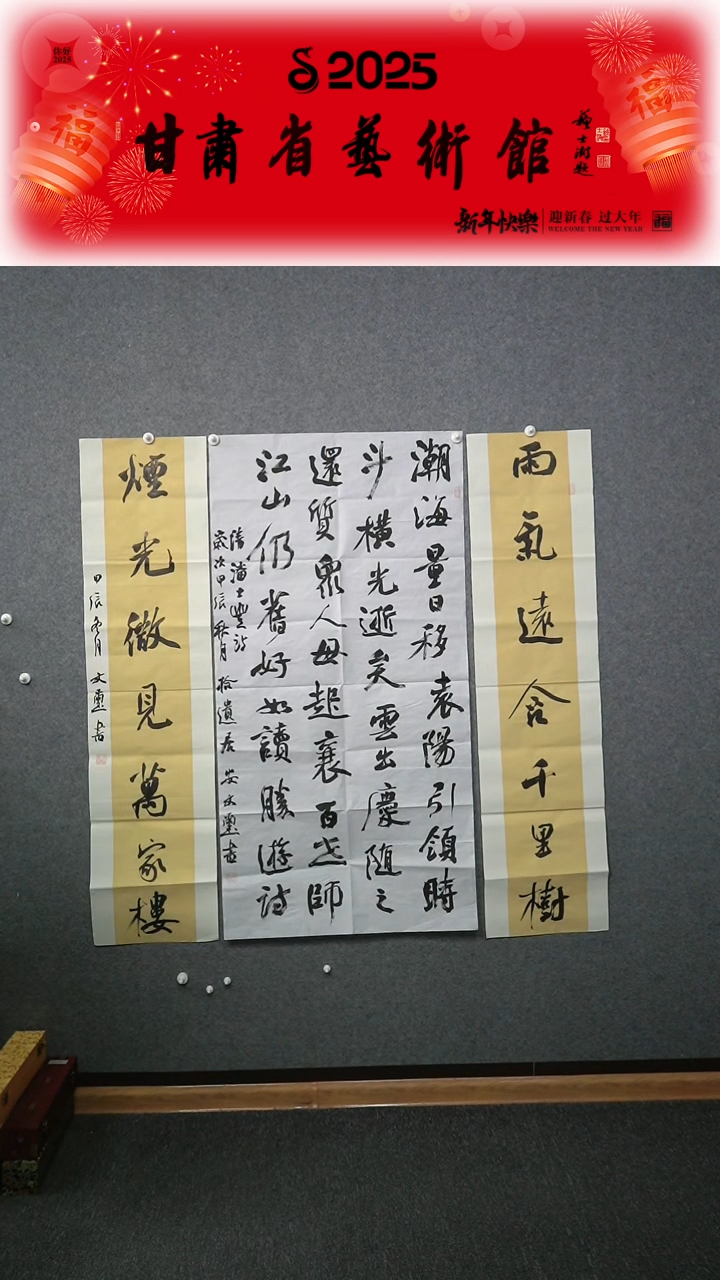 你好
2025
2025
甘肅省藝術館
福
福
新年快樂
迎新春 过大年
WELCOME THE NEW YEAR
福
雨氣遠含千里樹
潮海量日移袁陽引領時
斗橫光逝矣雲出慶隨之
還質眾人毋起襄百世師
江山仍舊好如讀勝遊詩
歲次甲辰秋月 拾遺居 安文璽書
煙光微見萬家樓
甲辰月 文璽書